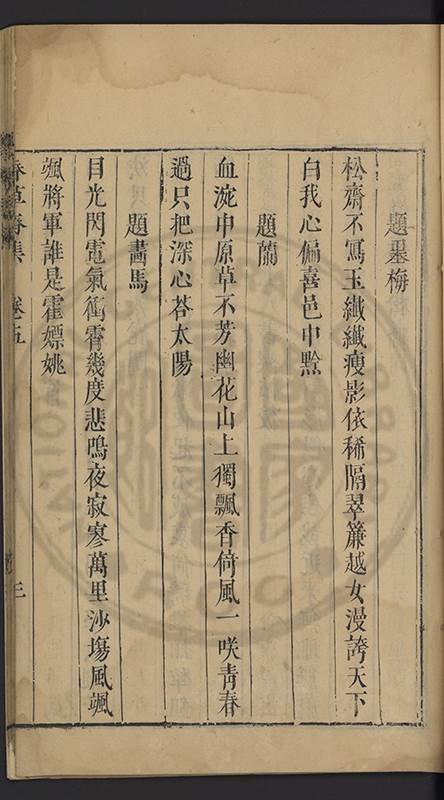 題墨梅
松齋不寫玉纖纖瘦影依稀隔翠簾越女漫誇天下
白我心偏喜邑中黔
題蘭
血漩中原草不芳幽花山上獨飄香倚風一咲青春
過只把深心荅太陽
題畵馬
目光閃電氣衝霄幾度悲鳴夜寂寥萬里沙塲風颯
颯將軍誰是霍嫖姚
卷五
三